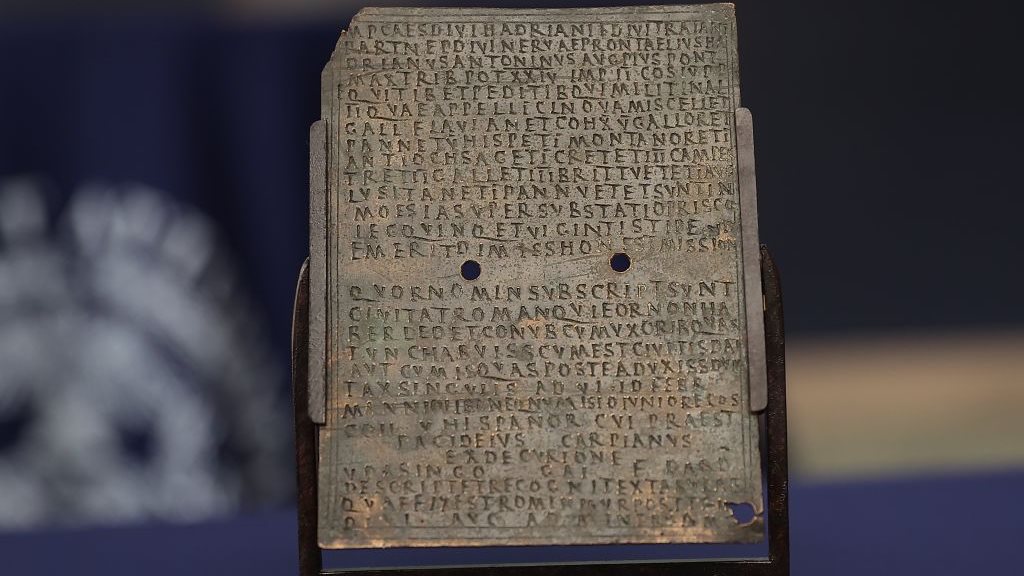 MP CAES DIVI HADRIANI F DIVI TRAIA
PARTNEPDIVINERVAEPRONTAELIVSH
DRIANVSANTONINVSAVGPIVSPONT
MAXTRIBPOTXXIV IMPII COS
QVITIBETPEDITIBQVIMILITINAL
IIQVAEAPPELLICINOVAMISCELIET
GALLFLAVIANETCOHXVGALLORET
PANNETVHISPETIMONTANORETI
ANTIOCHSAGETICRETETIIICAMPES
TRETIIGALLETIIIBRITTVETETIHVS
LVSITANETIPANNVETETSVNTIN
MOESIASVPERSVBSTATIOPRISCO
LEGQVINQETVIGINTISTIPEN
EMERITDIMISSHONESTMISSION
QVORNOMINSVBSCRIPTSVNT
CIVITATROMANQVIEORNONHA
BERDEDETCONVBCVMVXORIBQVAS
TVNCHABVISSCVMESTCIVITISDAT
AVTCVMISQVASPOSTEADVXISSDVM
TAXSINGVLIS AD VI ID FEBR
COH VHISPANORCVI PRAEST
FACIDEIVS CARPIANVS
EXDECVRIONE
DESCRIPTETRECOGNITEXTA